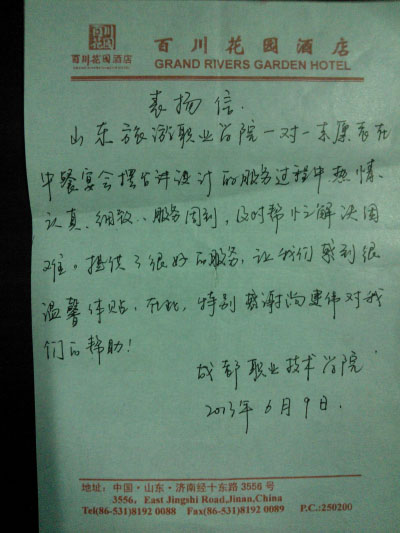 百川花园酒店
百川花园酒店
GRAND RIVERS GARDEN HOTEL
表扬信
山东旅游职业学院一对一
中餐宴会摆台讲设计的服务过程中热情、
认真、细致、服务周到,及时帮忙解决困
难。提供了很好的服务,让我们感到很
温馨体贴,在此,特别感谢 建伟对我
们的帮助!
成都职业技术学院
2013年6月9日.
地址:中国·山东·济南经十东路3556号
3556, East Jingshi Road,Jinan,China
Tel(86-531)8192 0088 Fax(86-531)8192 0089 P.C.:250200